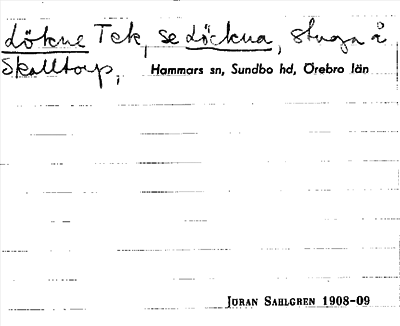 Lökne Tek, se Löckna, stuga å
Skalltorp,
Hammars sn, Sundbo hd, Örebro län
JÖRAN SAHLGREN 1908-09